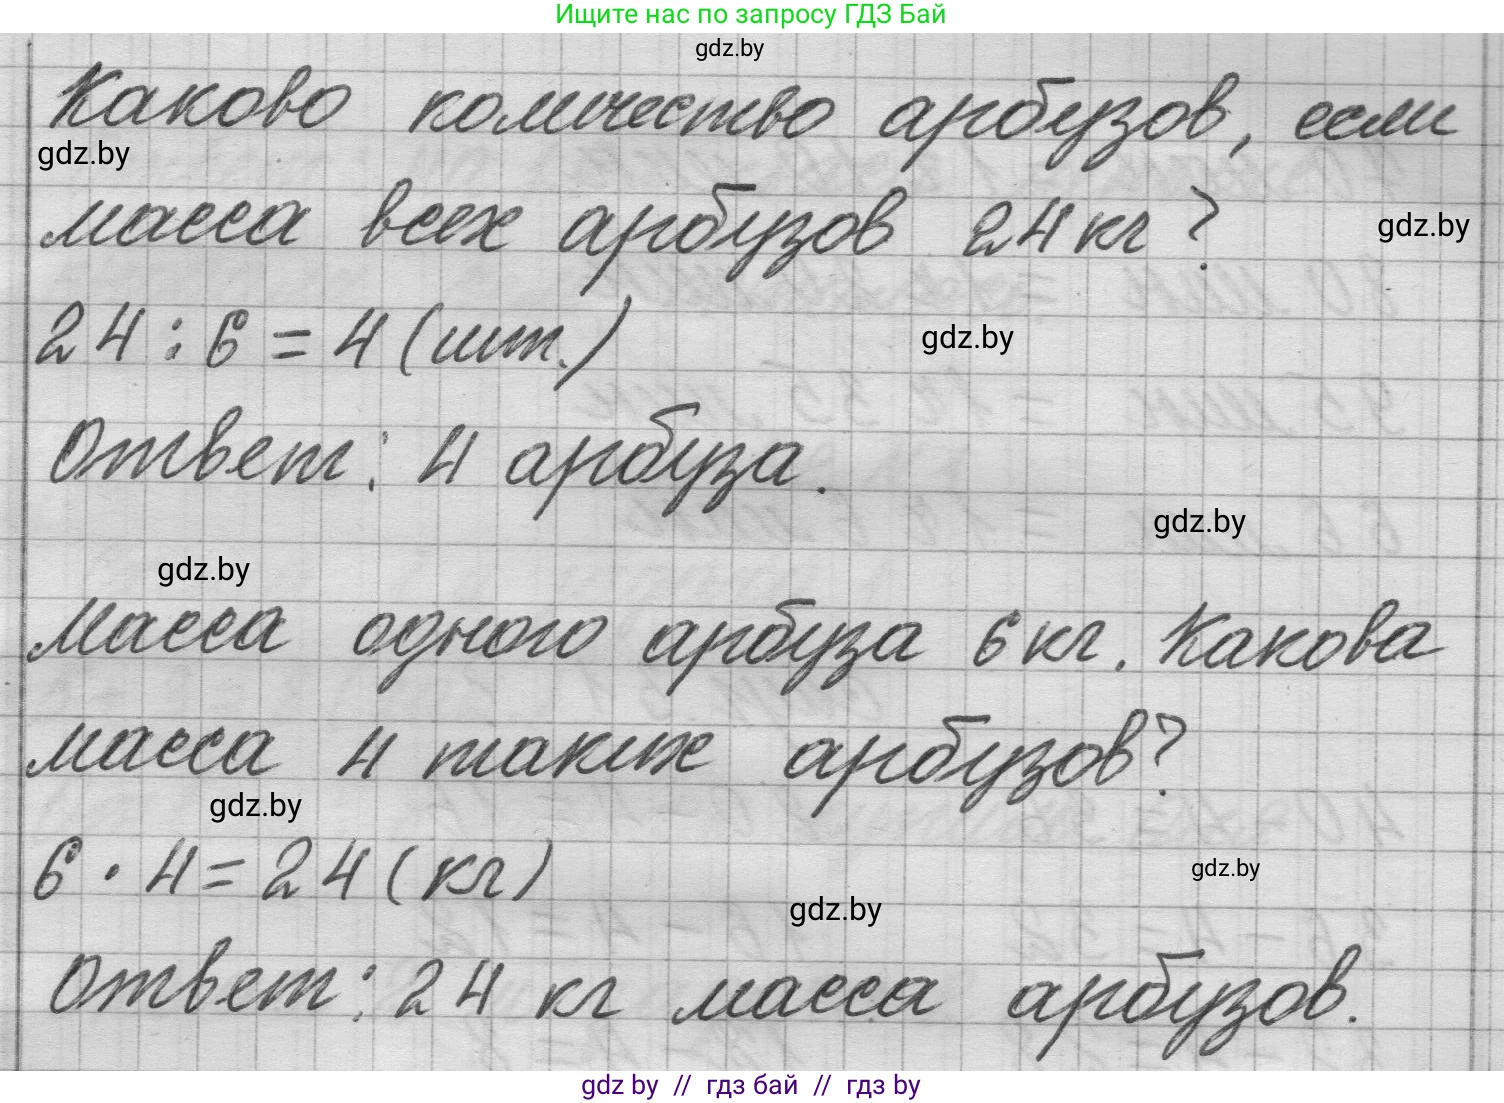 Ищите нас по запросу ГДЗ Бай
gdz.by
Каково количество арбузов, если
gdz.by
масса всех арбузов 24 кг?
gdz.by
24 : 6 = 4 (шт.)
gdz.by
Ответ: 4 арбуза.
gdz.by
gdz.by
Масса одного арбуза 6 кг. Какова
масса 4 таких арбузов?
gdz.by
6 · 4 = 24 (кг)
gdz.by
gdz.by
Ответ: 24 кг масса арбузов.
gdz by // гдз бай // гдз by